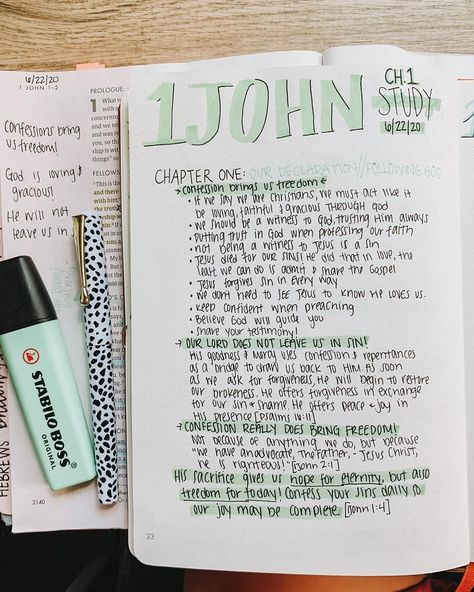 6/22/20
1 JOHN 1-2
Confessions bring
us freedom!
God is loving &
gracious!
He will not
leave us in
PROLOGUE:
1
FELLOWS
2140
HEBREWS
STABILO BOSS
ORIGINAL
1 JOHN
CH.1
STUDY
6/22/20
CHAPTER ONE: OUR DECLARATION//FOLLOWING GOD
→ Confession brings us freedom ←
• If we say we are christians, we must act like it
be loving, faithful & gracious THROUGH GOD
• We should be a witness to God, trusting Him always
• putting trust in God when professing our faith
• not being a witness to Jesus is a sin
• Jesus died for OUR SINS! He did that in love, the
least we can do is admit & share the Gospel
• Jesus forgives sin in every way
• We don't need to SEE Jesus to know He loves us.
• Keep confident when preaching
• Believe God will guide you
• Share your testimony!
→ OUR LORD DOES NOT LEAVE US IN SIN!
His goodness & mercy uses confession & repentances
as a bridge to draw us back to HIM. As soon
as we ask for forgiveness, He will begin to restore
our brokeness. He offers forgiveness in exchange
for our sin & shame. He offers peace & joy in
His presence [Psalms 16:11]
→ CONFESSION REALLY DOES BRING FREEDOM!
Not because of anything we do, but because
"we have an advocate, The Father, - Jesus Christ,
he is righteous!" [1 John 2:1]
His sacrifice gives us hope for eternity, but also
freedom for today! Confess your sins daily so
our joy may be complete. [John 1:4]
23